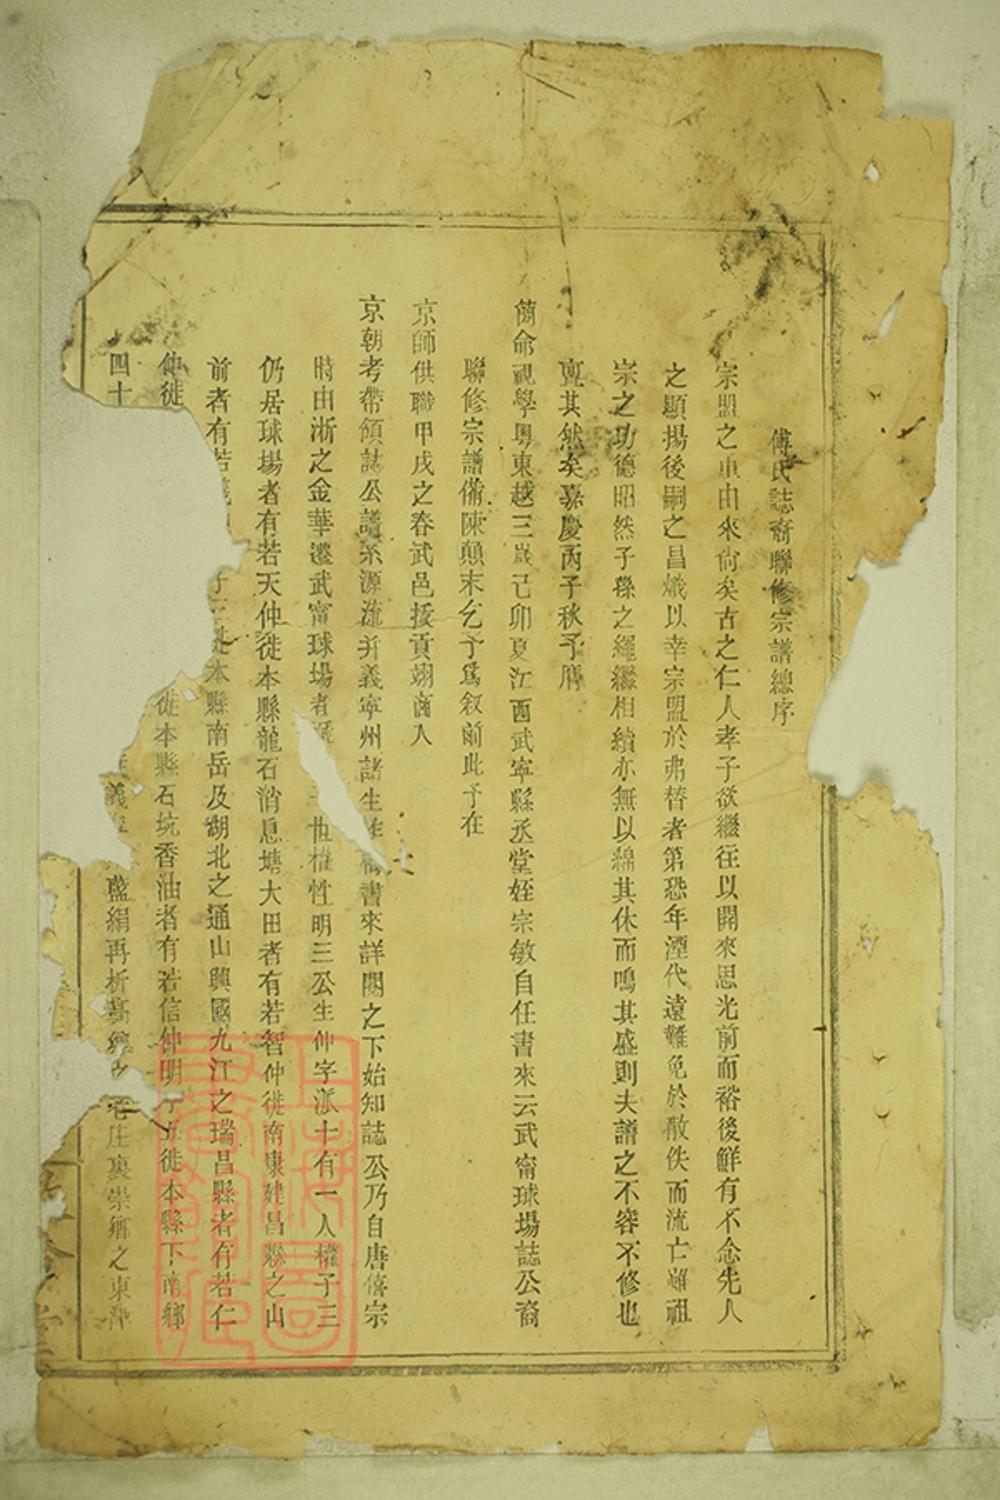 傅氏誌裔聯修宗譜總序
宗盟之重由來尚矣古之仁人孝子欲繼往以開來思光前而裕後鮮有不念先人
之顯揚後嗣之昌熾以幸宗盟於弗替者第恐年湮代遠難免於散佚而流亡雖祖
宗之功德昭然子孫之繩繼相續亦無以綿其休而鳴其盛則夫譜之不容不修也
亶其然矣嘉慶丙子秋予膺
簡命視學粵東越三歲己卯夏江西武寧縣丞堂姪宗敏自任書來云武甯球場誌公裔
聯修宗譜備陳顛末乞予為叙前此予在
京師供職甲戌之春武邑拔貢翊商人
京朝考帶領誌公譜系源流并義寧州諸生書來詳閱之下始知誌公乃自唐僖宗
時由浙之金華遷武甯球場者世權性明三公生仲字派十有一人權子三
仍居球場者有若天仲徙本縣龍石消息塘大田者有若智仲徙南康建昌縣之山
前者有若子三徙本縣南岳及湖北之通山興國九江之瑞昌縣者有若仁
仲徙徙本縣石坑香油者有若信仲明子五徙本縣下南鄉
四十義藍絹再析高鄉之老庄裏崇鄉之東津
上海圖書館藏